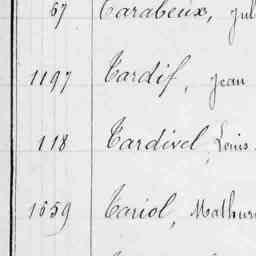 67 Tarabeux, Jul
1197 Tardif, Jean
118 Tardivel, Louis
1659 Tariol, Mathur